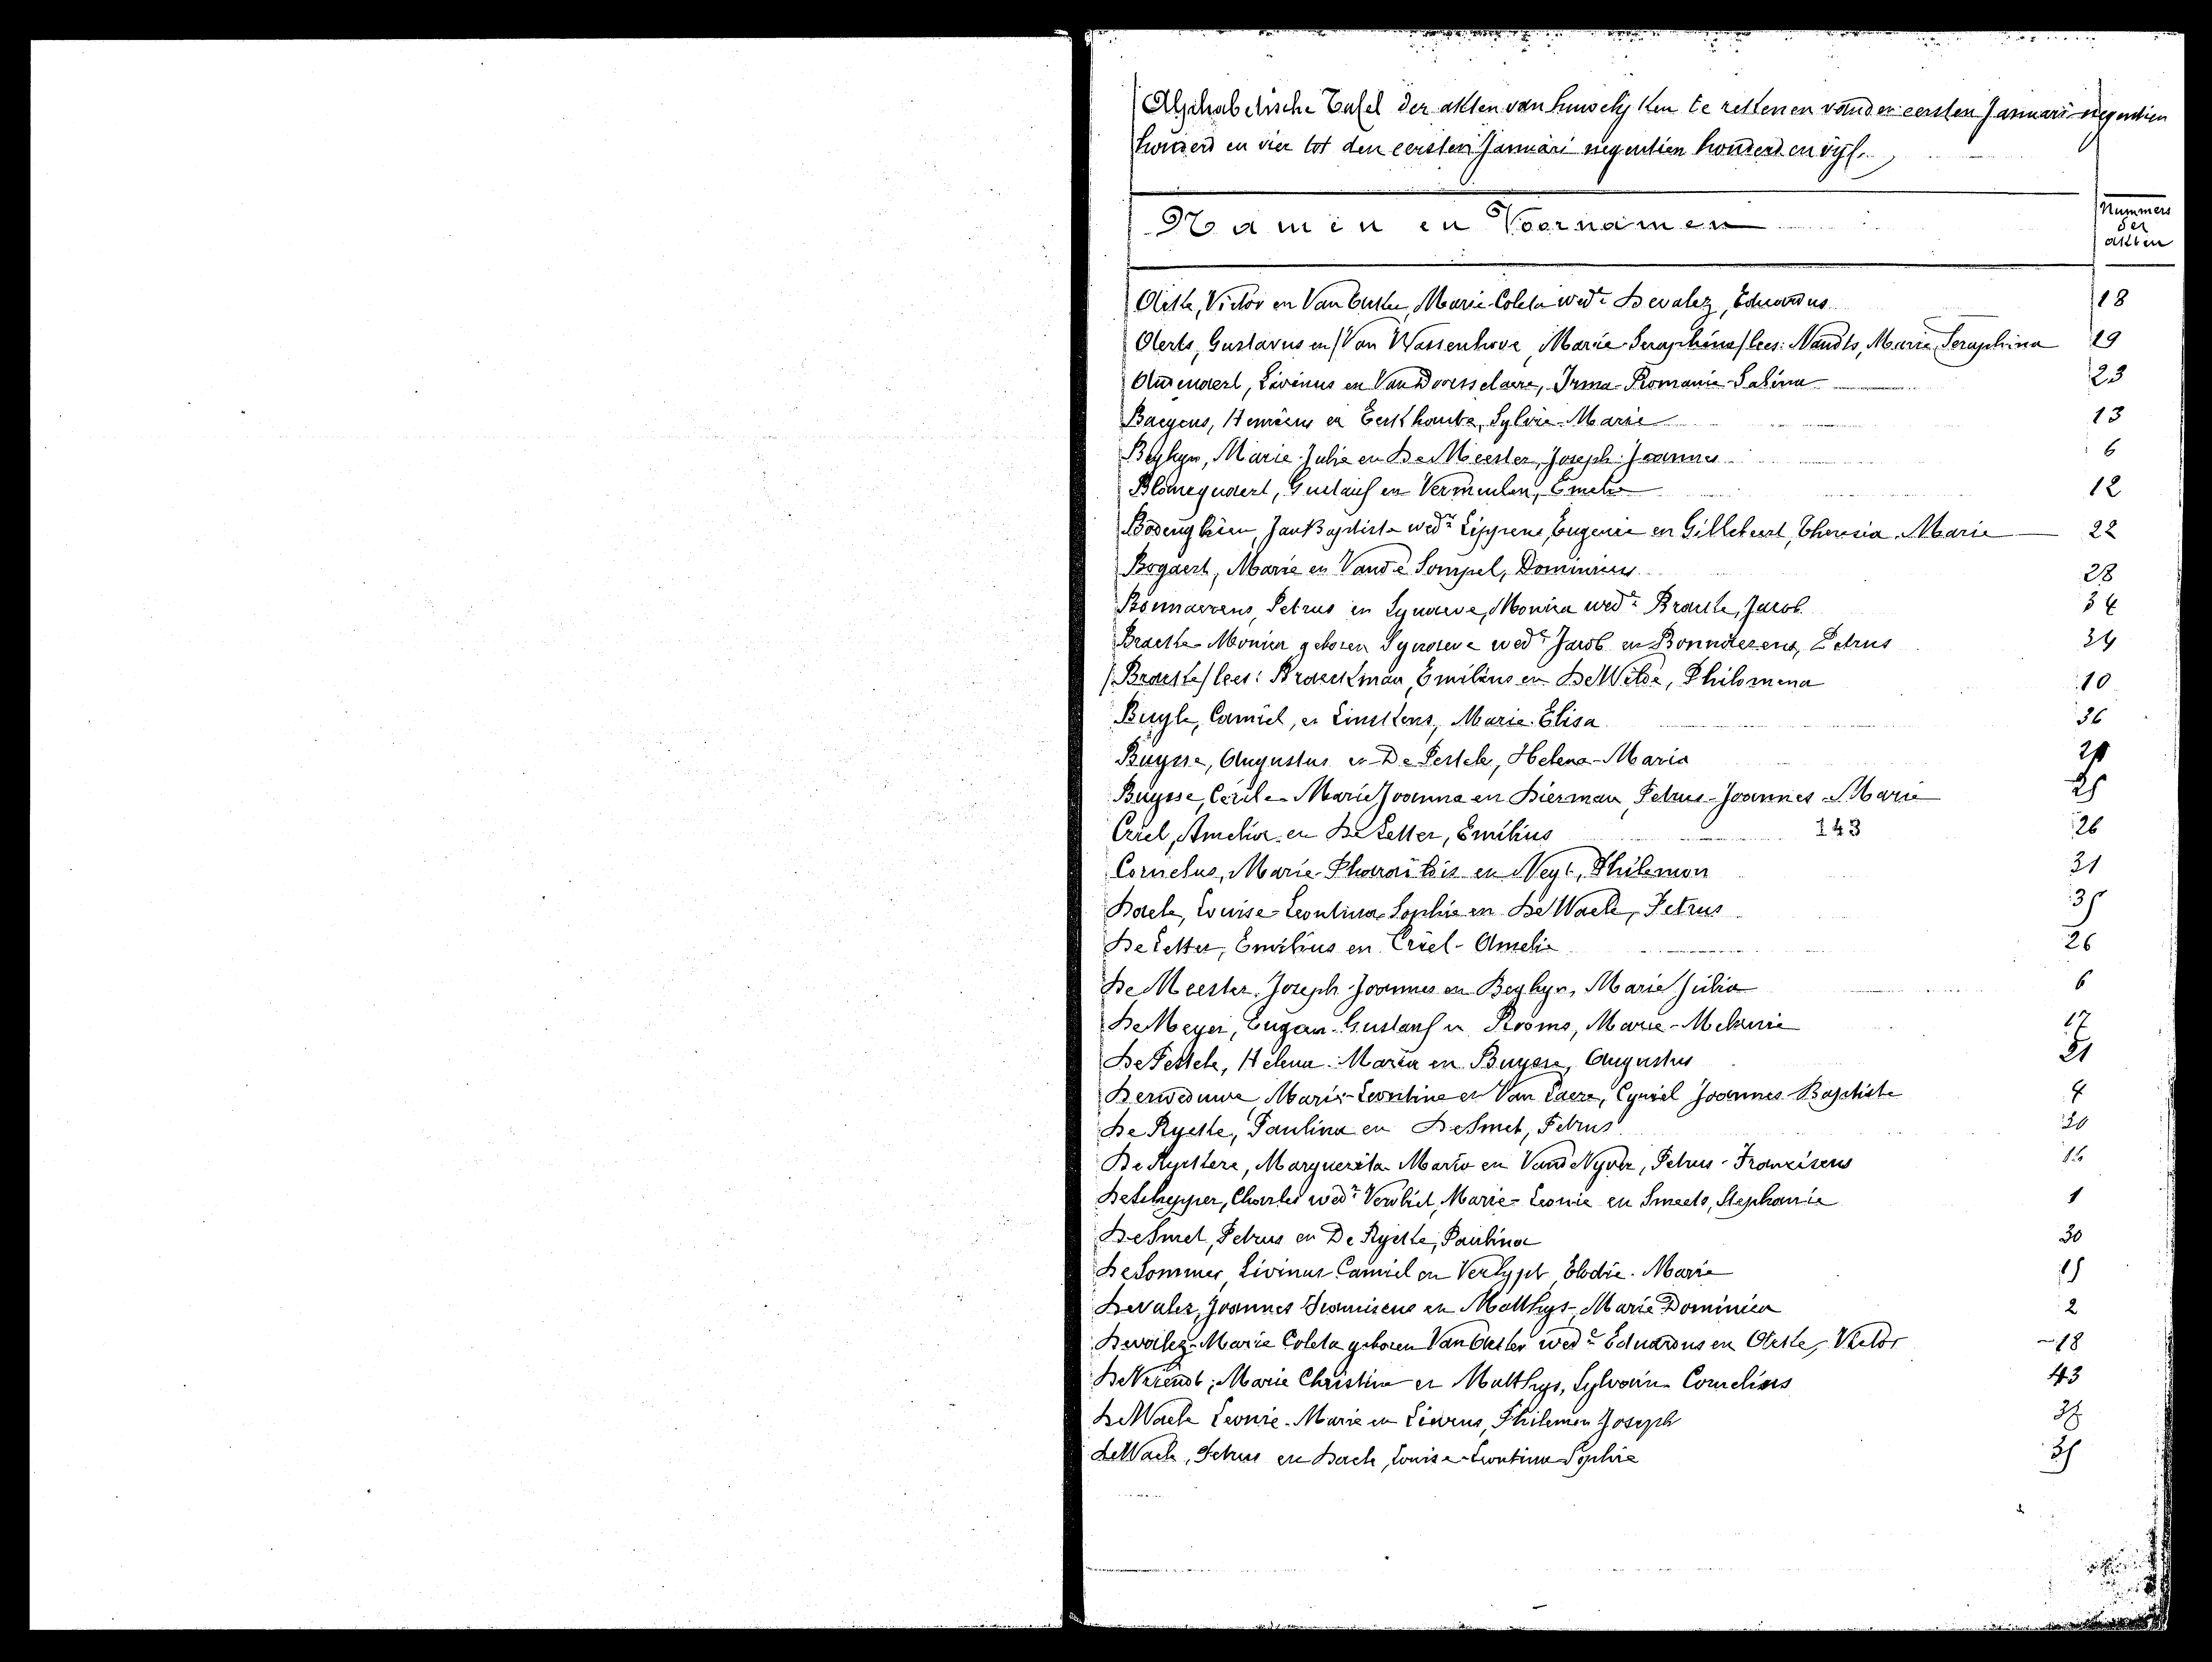 Alphabetische Tafel der akten van huwelijken te rekenen van den eersten Januari negentien
honderd en vier tot den eersten Januari negentien honderd en vijf.
Namen en Voornamen
Nummers
der
akten
Victor en Marie-Coleta wede Devalez, Eduardus 18
Aerts, Gustavus en /Van Wassenhove, Marie-Seraphina/ lees: Nauds, Marie Seraphina 19
Livinus en Van Doorsselaere, Irma-Romanie-Sabina 23
Baeyens, Henricus en Eeckhoute, Sylvie-Marie 13
Beghyn, Marie-Julie en De Meester, Joseph-Joannes 6
Blomegnaert, Gustaaf en Vermeulen, Emelie 12
Bodenghien, Jan Baptiste wedr Lippens, Eugenie en Gillebeert, Theresia-Marie 22
Bogaert, Marie en Van de Sompel, Dominicus 28
Bonnarens, Petrus en Synaeve, Monica wede Braeke, Jacob 34
Braeke Monica geboren Synaeve wede Jacob en Bonnarens, Petrus 34
/Braeke/ lees: Braeckman, Emilius en De Wilde, Philomena 10
Buyle, Camiel, en Linskens, Marie-Elisa 36
Buysse, Augustus en De Pestele, Helena-Maria 21
Buysse, Cécile-Marie Joanna en Dierman, Petrus-Joannes-Marie 25
Criel, Amelia en De Letter, Emilius 143 26
Cornelus, Marie-Pharaïldis en Neyt, Philemon 31
Daele, Louise-Leontina-Sophie en De Waele, Petrus 35
De Letter, Emilius en Criel-Amelie 26
De Meester, Joseph-Joannes en Beghyn, Marie Julia 6
De Meyer, Eugeen-Gustaaf en Rooms, Marie-Melanie 17
De Pestele, Helena-Maria en Buysse, Augustus 21
Derweduwe Marie-Leontine en Van Laere, Cyriel Joannes-Baptiste 4
De Rycke, Paulina en De Smet, Petrus 30
De Ryckere, Marguerita Maria en Van de Nyver, Petrus-Franciscus 16
De Schepper, Charles wedr Vervliet, Marie-Leonie en Smeets, Stephanie 1
De Smet, Petrus en De Rycke, Paulina 30
De Sommer, Livinus-Camiel en Verlypt, Elodie-Marie 15
Devalez, Joannes Franciscus en Matthys, Marie Dominica 2
Devalez Marie Coleta geboren wede Eduardus en Victor 18
De Vriendt, Marie Christine en Matthys, Sylvain Cornelius 43
De Waele Leonie-Marie en Lievens, Philemon Joseph 37
De Waele, Petrus en Daele, Louise-Leontina Sophie 35